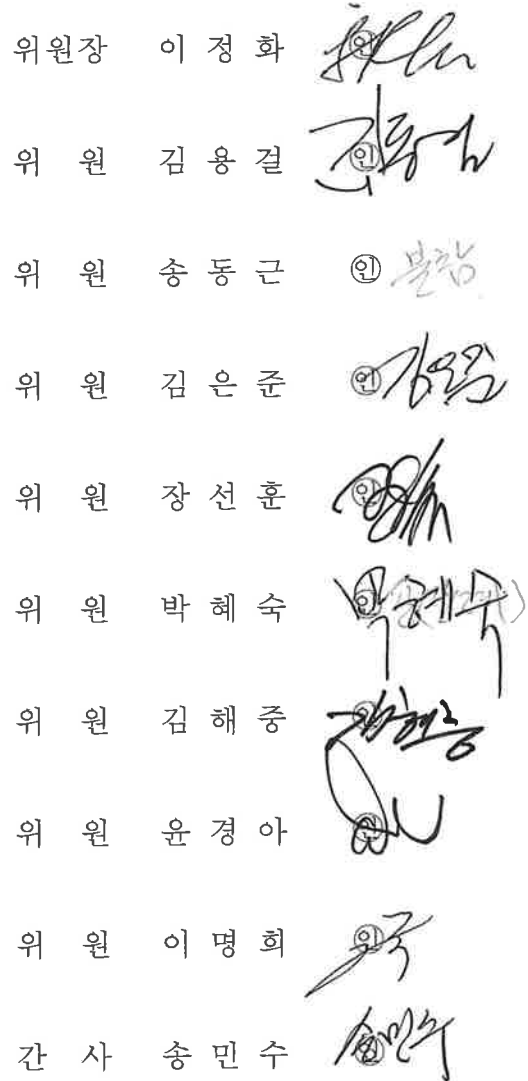 위원장 이 정 화 ㊞
위 원 김 용 걸 ㊞
위 원 송 동 근 ㊞ 불참
위 원 김 은 준 ㊞
위 원 장 선 훈 ㊞
위 원 박 혜 숙 ㊞ 박혜숙
위 원 김 해 중 ㊞
위 원 윤 경 아 ㊞
위 원 이 명 희 ㊞
간 사 송 민 수 ㊞ 송민수